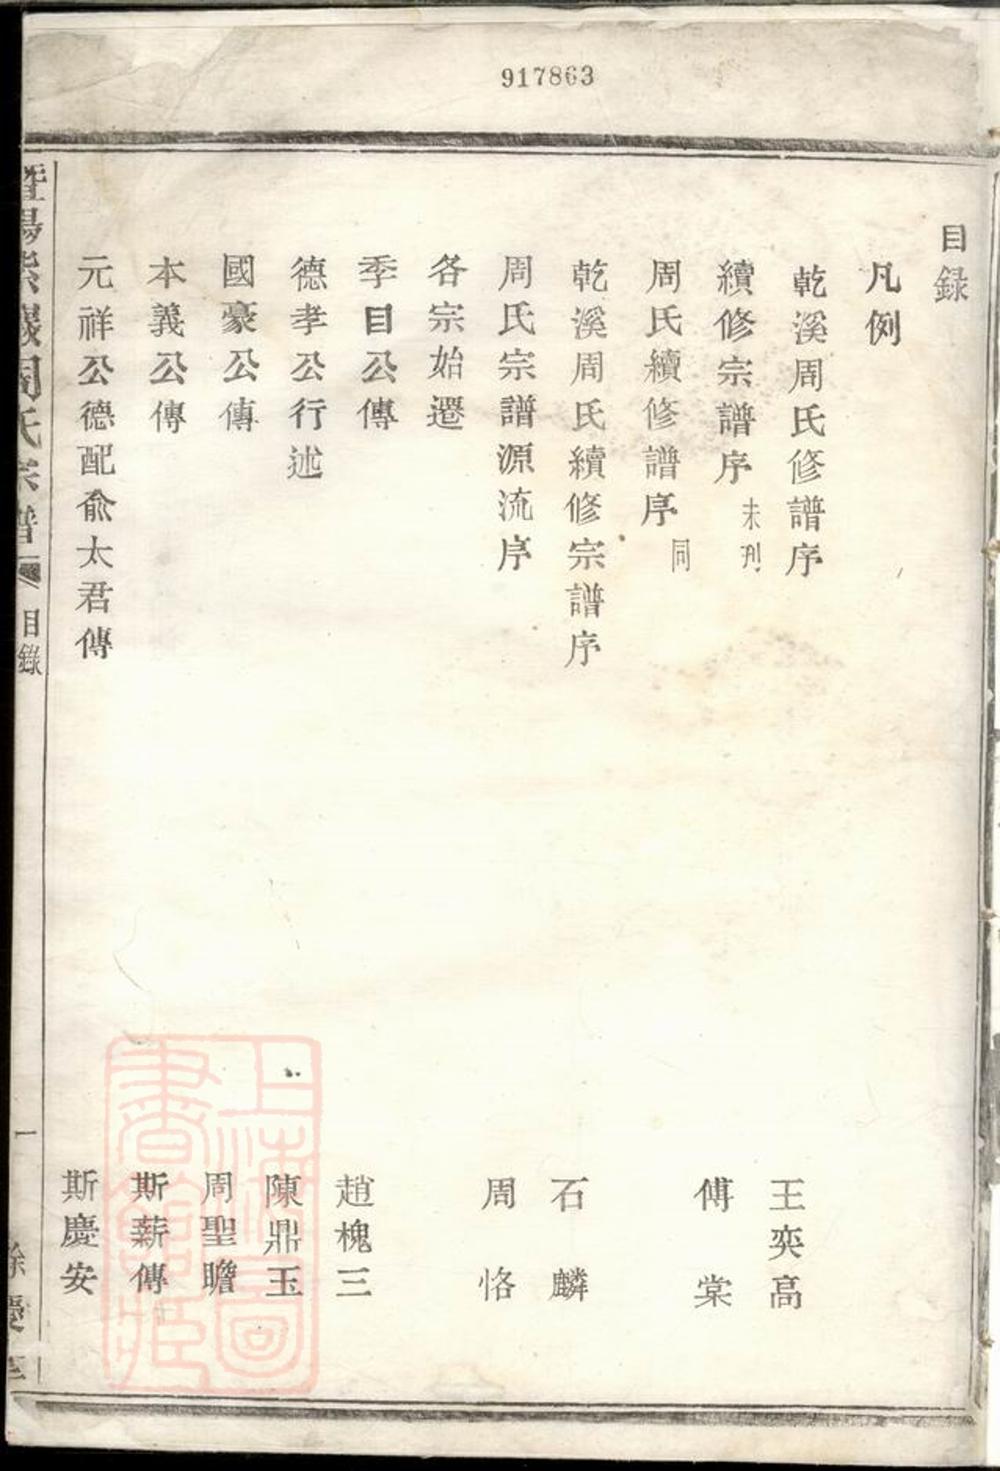 917863
目錄
凡例
乾溪周氏修譜序 王奕高
續修宗譜序 未刊 傅棠
周氏續修譜序 同
乾溪周氏續修宗譜序 石麟
周氏宗譜源流序 周恪
各宗始遷
季目公傳 趙槐三
德孝公行述 陳鼎玉
國豪公傳 周聖瞻
本義公傳 斯薪傳
元祥公德配俞太君傳 斯慶安
周氏宗譜 目錄 一
上海圖書館藏